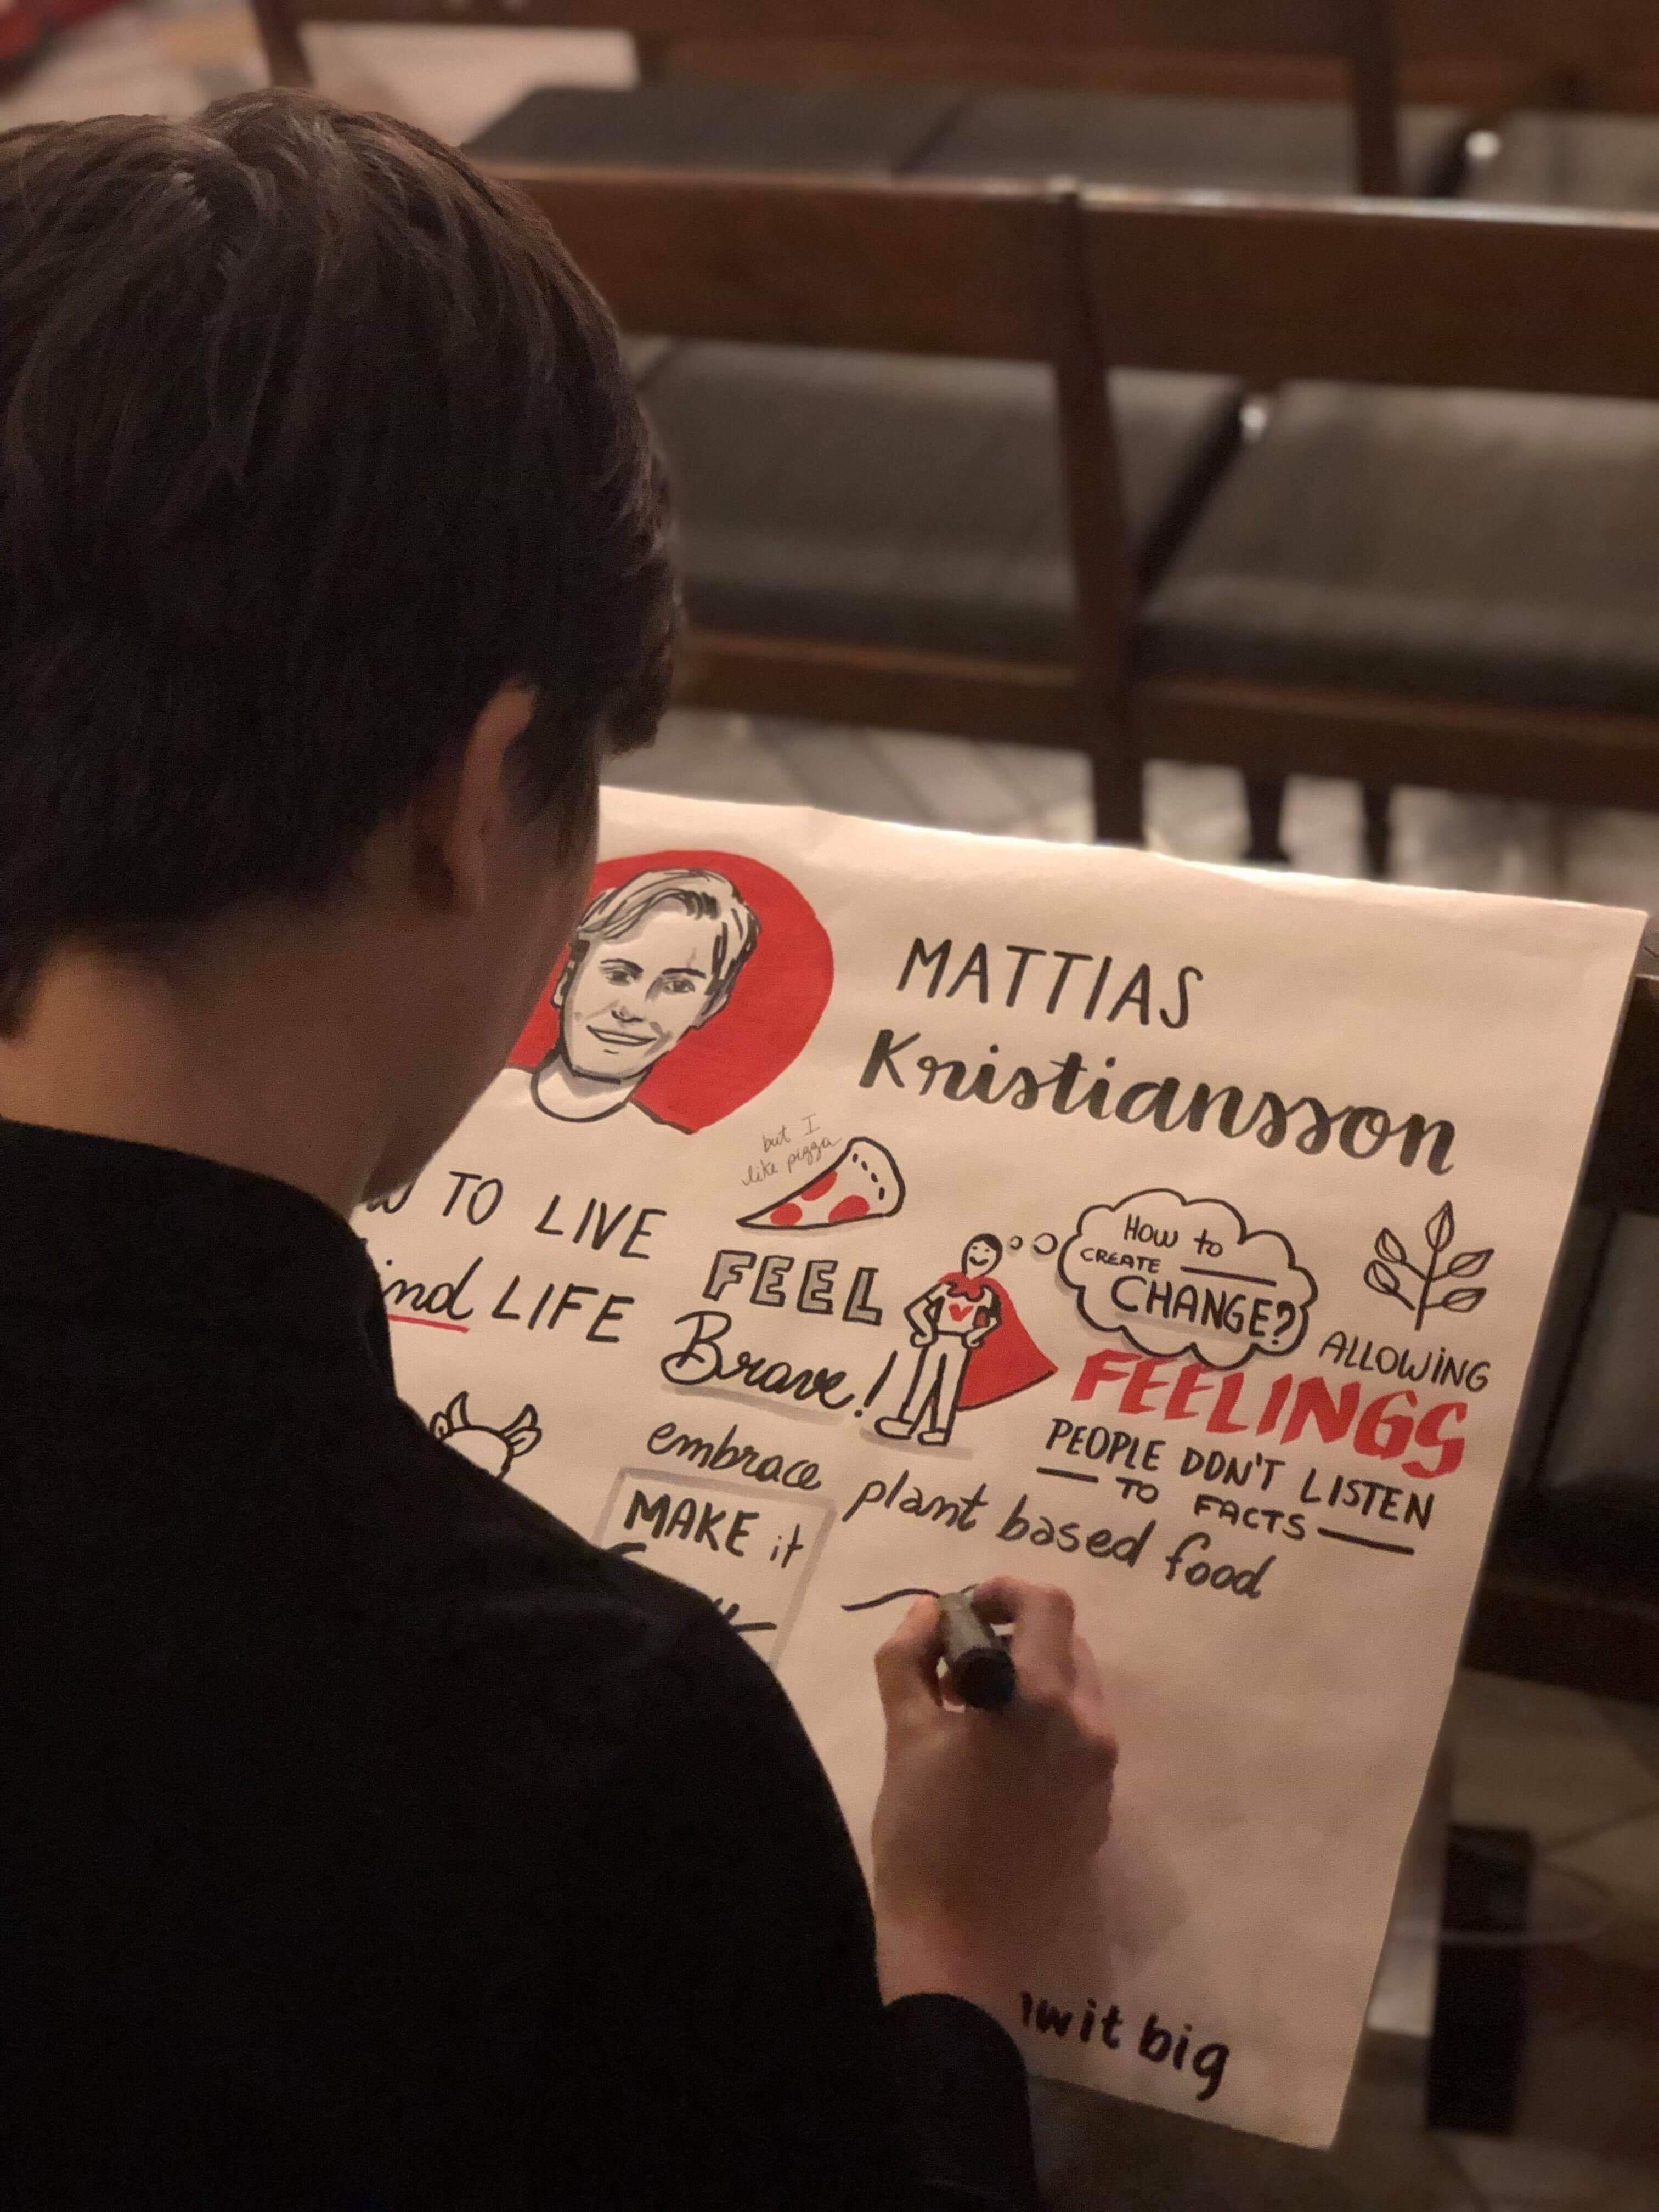 MATTIAS
Kristiansson
but I
like pizza
TO LIVE
LIFE
FEEL
Brave!
HOW to
CREATE
CHANGE?
ALLOWING
FEELINGS
PEOPLE DON'T LISTEN
TO FACTS
embrace plant based food
MAKE it
big